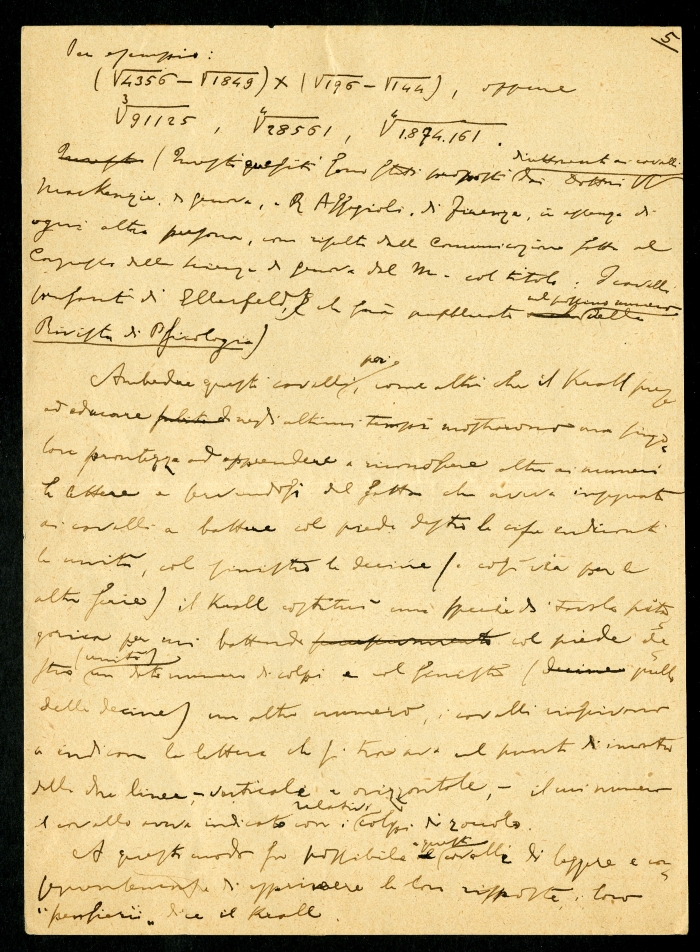 5
Per esempio:
(√4356 − √1849) × (√196 − √144), oppure
³√91125, ⁴√28561, ⁴√1.874.161.
(Questi quesiti sono stati proposti direttamente ai cavalli dai Dottori W
Mackenzie, di Genova, e R Assagioli, di Firenze, in assenza di
ogni altra persona, come risulta dalla Comunicazione fatta al
Congresso delle Scienze di Genova dal M- col titolo: I cavalli
pensanti di Ellerfeld, e che sarà pubblicata nel prossimo numero della
Rivista di Psicologia)
Ambedue questi cavalli, poi, come altri che il Krall prese
ad educare negli ultimi tempi mostrarono una singo-
lare prontezza ad apprendere a riconoscere oltre ai numeri
le lettere e servendosi del fatto che aveva insegnato
ai cavalli a battere col piede destro le cifre indicanti
le unità, col sinistro le decine (e così via per le
altre serie) il Krall costituì una specie di Tavola pita-
gorica per cui battendo col piede de-
stro (unità) un dato numero di colpi e col sinistro (quello
delle decine) un altro numero, i cavalli riuscivano
a indicare la lettera che si trovava nel punto di incontro
delle due linee, - verticale e orizzontale, - il cui numero
il cavallo aveva indicato con i relativi colpi di zoccolo.
A questo modo fu possibile a questi cavalli di leggere e con-
seguentemente di esprimere le loro risposte, i loro
"pensieri" dice il Krall.